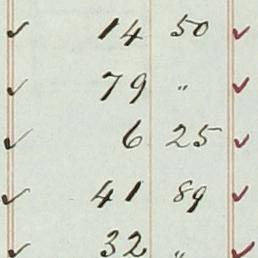 ✓ 14 50 ✓
✓ 79 " ✓
✓ 6 25 ✓
✓ 41 89 ✓
✓ 32 " ✓